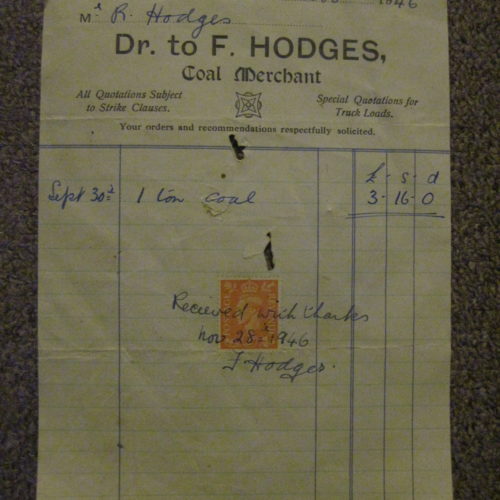 1946
Mr R. Hodges
Dr. to F. HODGES,
Coal Merchant
All Quotations Subject
to Strike Clauses.
Special Quotations for
Truck Loads.
Your orders and recommendations respectfully solicited.
£ - s - d
Sept 30th 1 ton coal 3 - 16 - 0
Recieved with thanks
Nov 28th 1946
F Hodges.